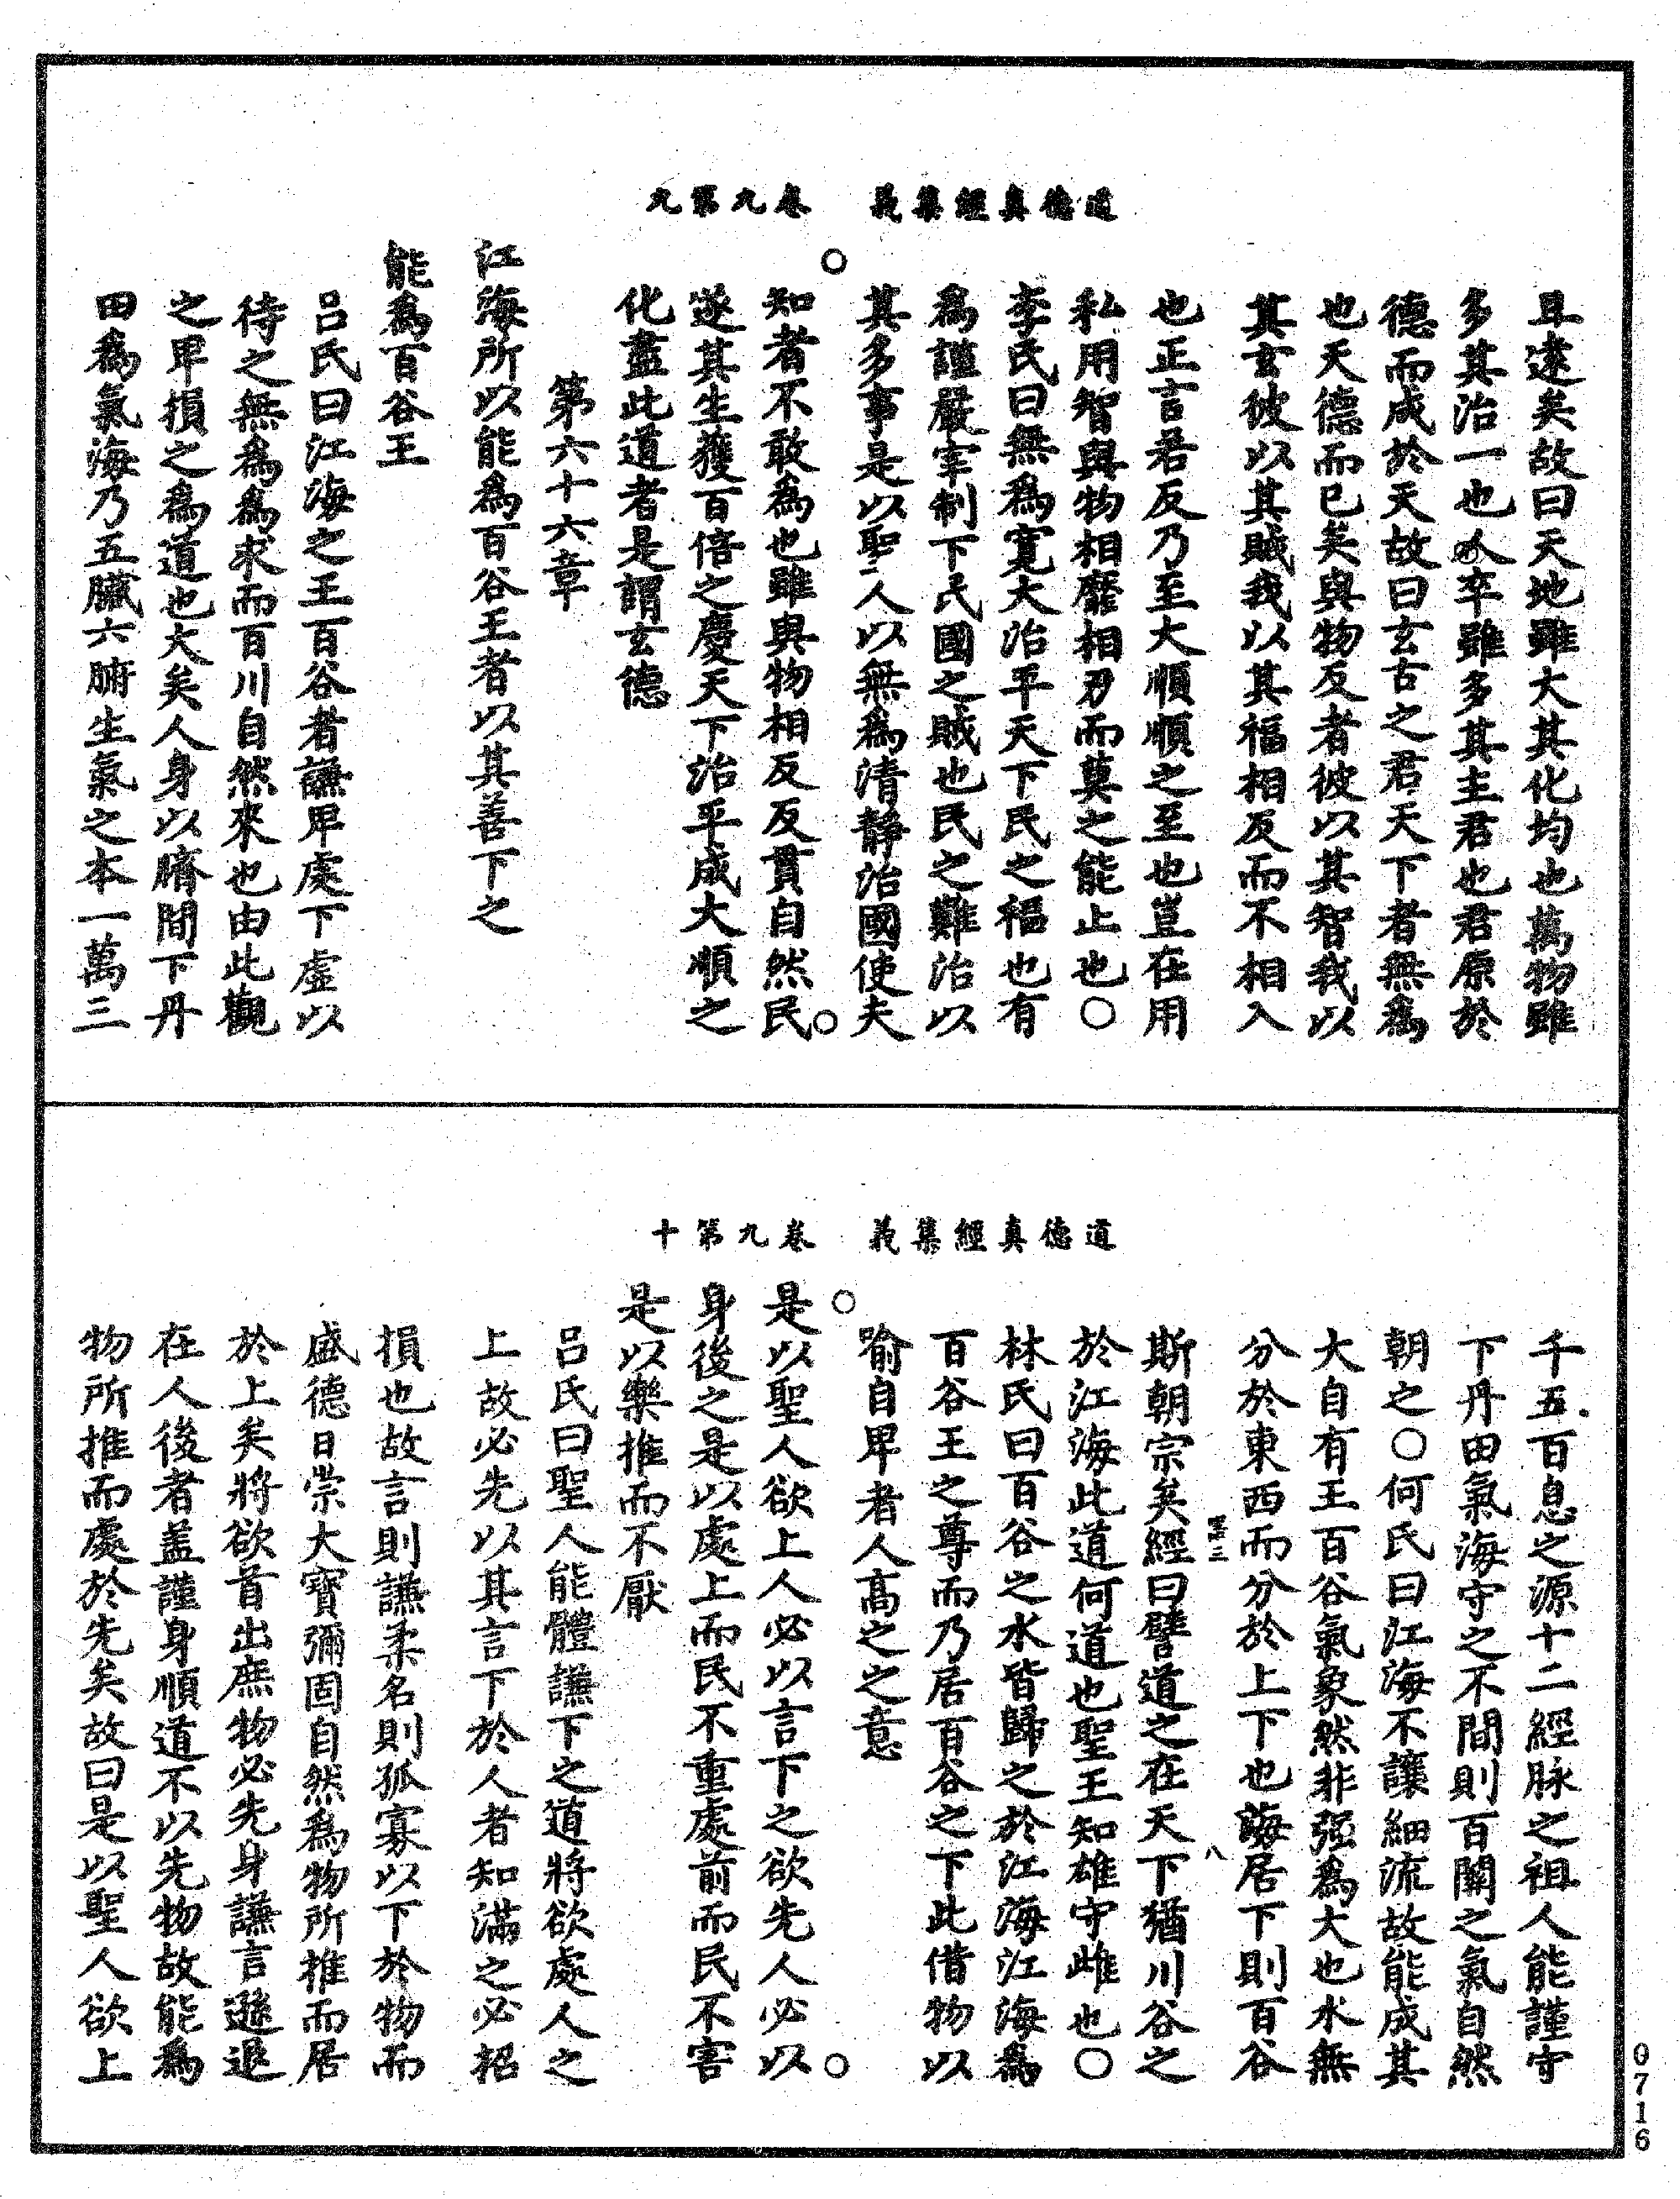 道德真經集義　卷九第九
且遠矣故曰天地雖大其化均也萬物雖
多其治一也人卒雖多其主君也君原於
德而成於天故曰玄古之君天下者無為
也天德而已矣與物反者彼以其智我以
其玄彼以其賊我以其福相反而不相入
也正言若反乃至大順順之至也豈在用
私用智與物相靡相刃而莫之能止也○
李氏曰無為寬大治平天下民之福也有
為謹嚴宰制下民國之賊也民之難治以
其多事是以聖人以無為清靜治國使夫
知者不敢為也雖與物相反反貫自然民
遂其生獲百倍之慶天下治平成大順之
化盡此道者是謂玄德
第六十六章
江海所以能為百谷王者以其善下之
能為百谷王
呂氏曰江海之王百谷者謙卑處下虛以
待之無為為求而百川自然來也由此觀
之卑損之為道也大矣人身以臍間下丹
田為氣海乃五臟六腑生氣之本一萬三
道德真經集義　卷九第十
千五百息之源十二經脉之祖人能謹守
下丹田氣海守之不間則百關之氣自然
朝之○何氏曰江海不讓細流故能成其
大自有王百谷氣象然非强為大也水無
分於東西而分於上下也海居下則百谷
斯朝宗矣經曰譬道之在天下猶川谷之
於江海此道何道也聖王知雄守雌也○
林氏曰百谷之水皆歸之於江海江海為
百谷王之尊而乃居百谷之下此借物以
喻自卑者人高之之意
是以聖人欲上人必以言下之欲先人必以
身後之是以處上而民不重處前而民不害
是以樂推而不厭
呂氏曰聖人能體謙下之道將欲處人之
上故必先以其言下於人者知滿之必招
損也故言則謙柔名則孤寡以下於物而
盛德日崇大寶彌固自然為物所推而居
於上矣將欲首出庶物必先身謙言遜退
在人後者盖謹身順道不以先物故能為
物所推而處於先矣故曰是以聖人欲上
0716